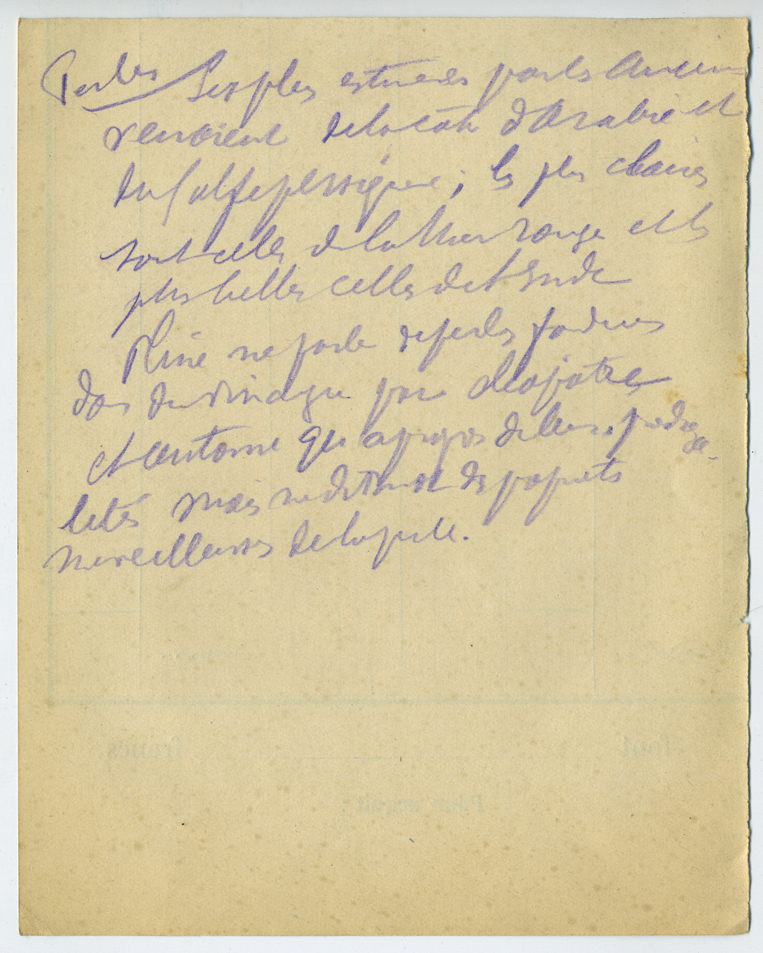 Perles Les plus estimées par les Anciens
venaient de la côte d'Arabie et
du Golfe persique ; les plus claires
sont celles de la Mer rouge et les
plus belles celles de l'Inde
Pline ne parle de perles fondues
dans du vinaigre par Cléopâtre
et Antoine qu'a propos de leurs prodiga-
lités mais ne dit rien des propriétés
merveilleuses de la perle.
font francs
Pour acquit